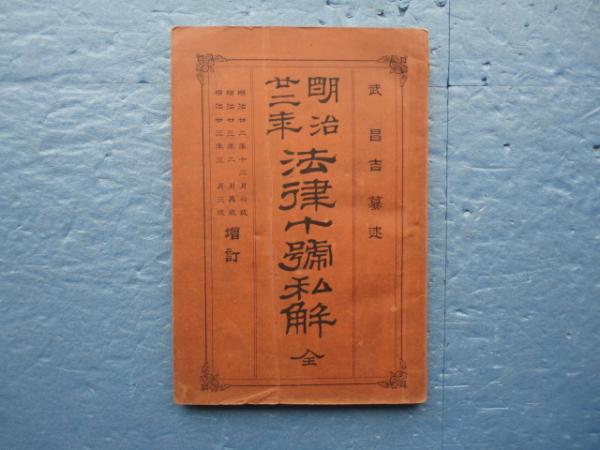 武昌吉纂述
明治
廿二年
法律十號私解 全
明治廿二年十二月初版
明治廿三年二月再版
明治廿三年三月三版
增訂